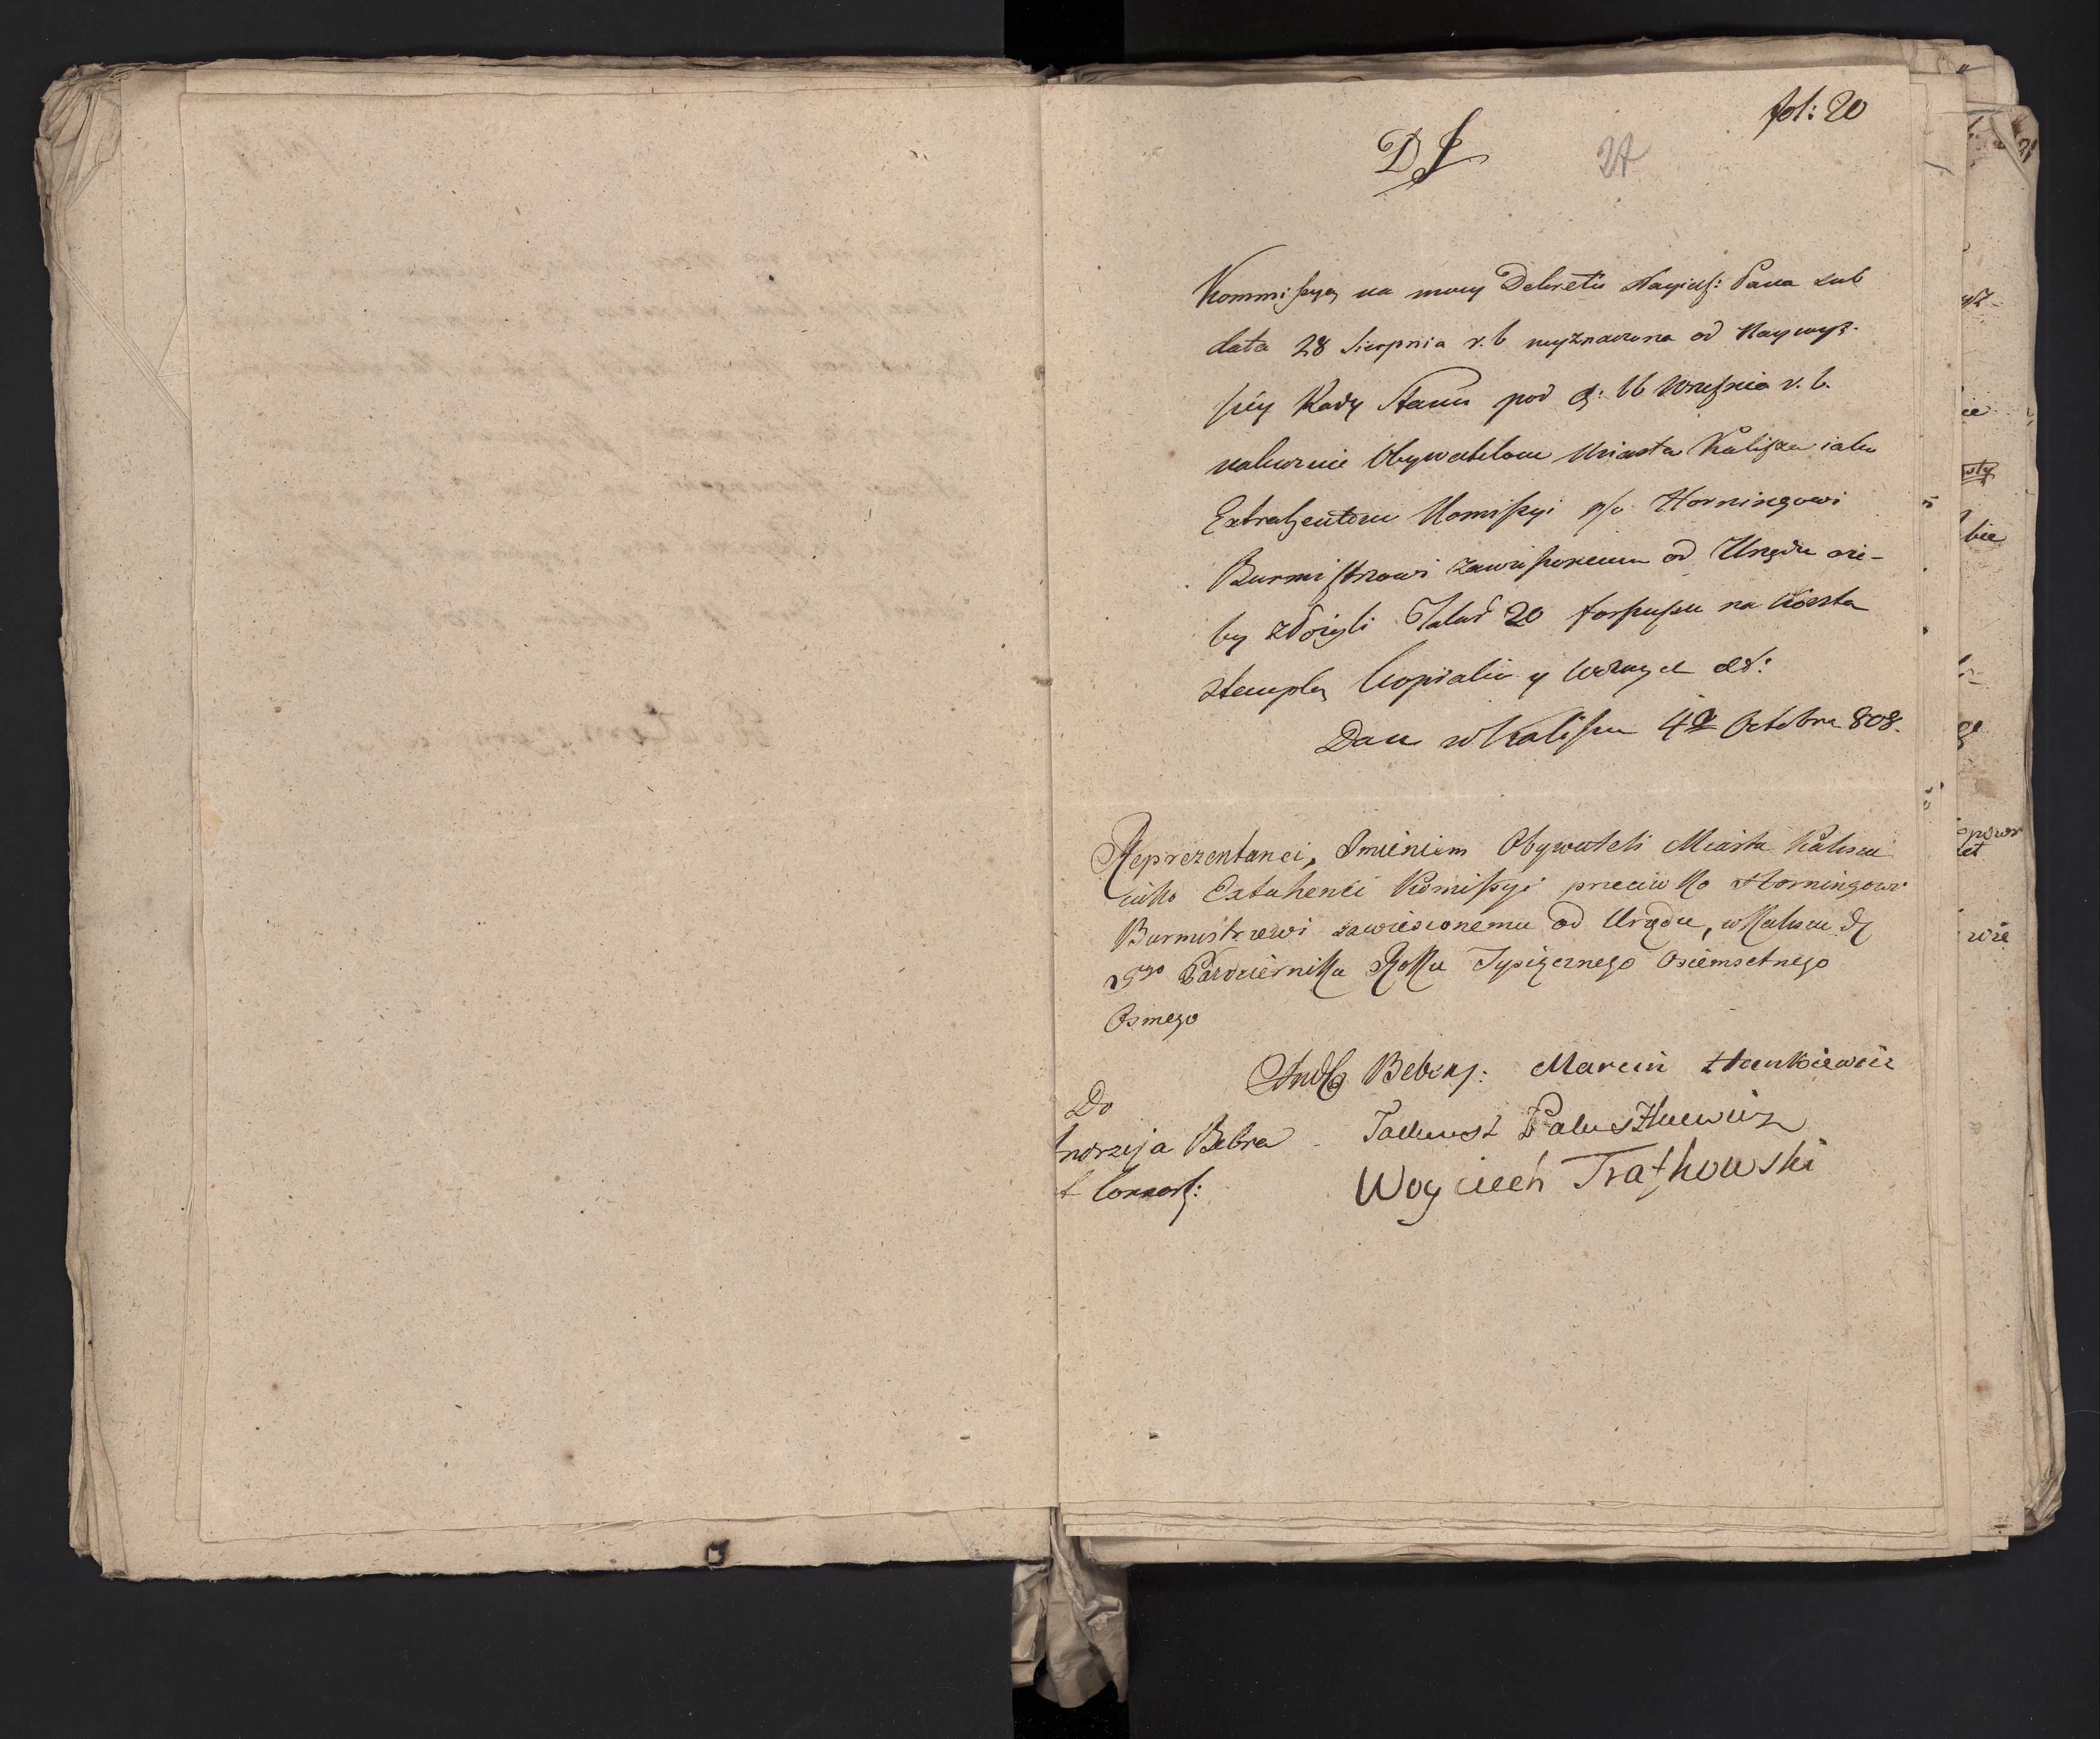 fol: 20
DJ
27
Kommissya na mocy Dekretu Nayiaś: Pana sub
data 28 Sierpnia r. b wyznaczona od Naywyż-
szey Rady Stanu pod d: 16 Września r. b.
nakazuie Obywatelom Miasta Kalisza iako
Extrahentom Komissyi p/o Horningowi
Burmistrzowi zawieszonemu od Urzędu aże-
by złożyli Talar 20 forszusu na koszta
stempla kopialia y
Dan w Kaliszu 4 Octobra 808.
Reprezentanci, Imieniem Obywateli Miasta Kalisza
iako Extahenci Komissyi przeciwko Horningowi
Burmistrzewi zawiesionemu od Urzędu, w Kaliszu d
25go Pazdziernika Roku Tysiącznego Osiemsetnego
Osmego
Bebersz: Marcin Stankiewicz
Do
Tadeusz Paluszkiewicz
ndrzeja Bebra
Woyciech Trafkowski
t Consort: